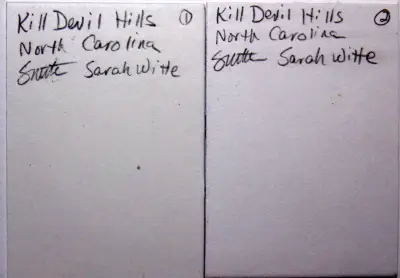 Kill Devil Hills ①
North Carolina
Sarah Witte
Kill Devil Hills ②
North Carolina
Sarah Witte